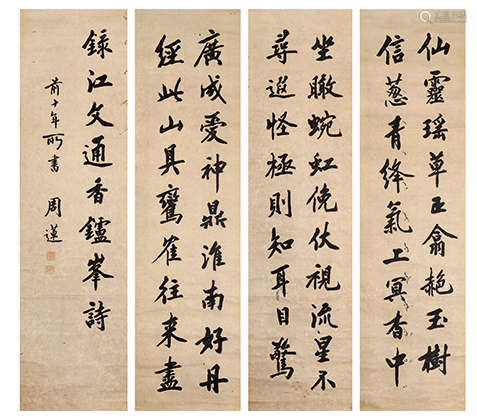 仙靈瑤草正翕赩玉樹
信葱青絳氣冥杳中
坐瞰蜿虹俛伏視流星不
尋遐怪極則知耳目驚
廣成愛神鼎淮南好丹
經此山具鸞隺往來盡
錄江文通香鑪峯詩
前十年所書 周蓮